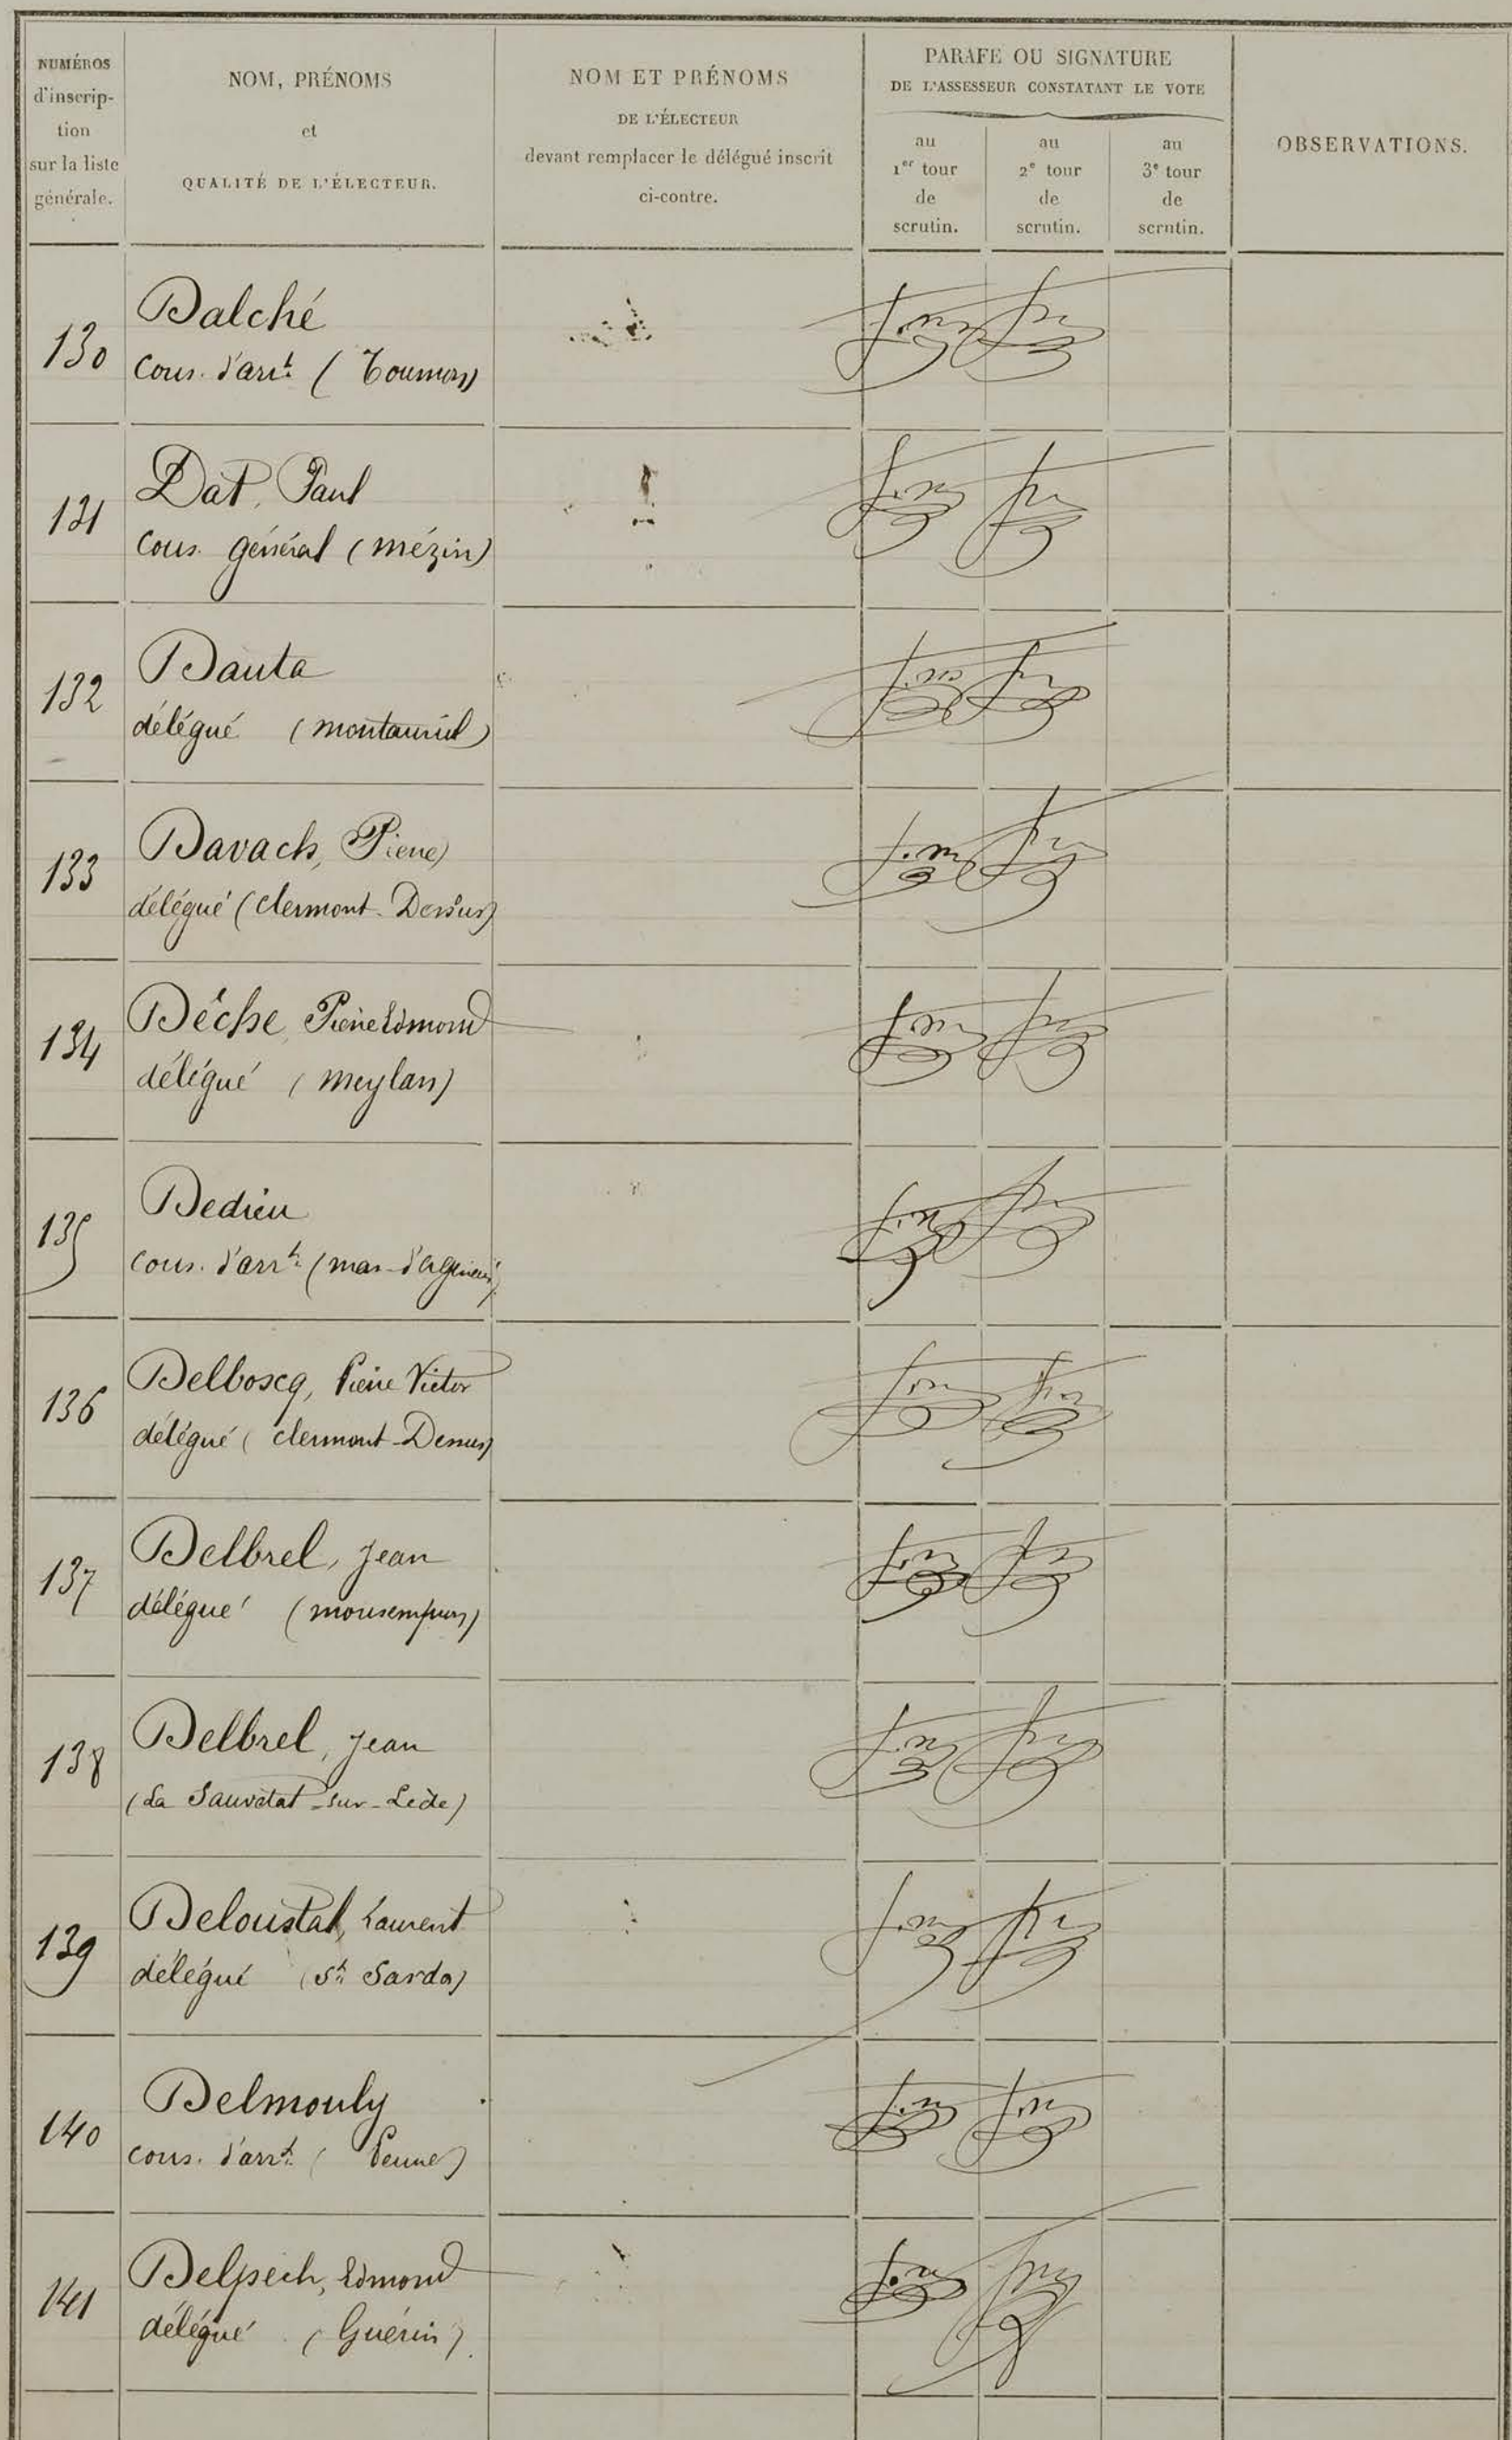 NUMÉROS
d'inscrip-
tion
sur la liste
générale.
NOM, PRÉNOMS
et
QUALITÉ DE L'ÉLECTEUR.
NOM ET PRÉNOMS
DE L'ÉLECTEUR
devant remplacer le délégué inscrit
ci-contre.
PARAFE OU SIGNATURE
DE L'ASSESSEUR CONSTATANT LE VOTE
au
1er tour
de
scrutin.
au
2e tour
de
scrutin.
au
3e tour
de
scrutin.
OBSERVATIONS.
130
Dalché
Cons. d'arrt (Tournon)
131
Dat, Paul
Cons. général (Mézin)
132
Dauta
délégué (Montauriol)
133
Davach, Pierre
délégué (Clermont-Dessus)
134
Dèche, Pierre Edmond
délégué (Meylan)
135
Dedieu
Cons. d'arrt (Mas-d'Agenais)
136
Delboscq, Pierre Victor
délégué (Clermont-Dessus)
137
Delbrel, Jean
délégué (Monsempron)
138
Delbrel, Jean
(La Sauvetat-sur-Lède)
139
Deloustal, Laurent
délégué (St Sardos)
140
Delmouly
Cons. d'arrt (Penne)
141
Delpech, Edmond
délégué (Guérin).